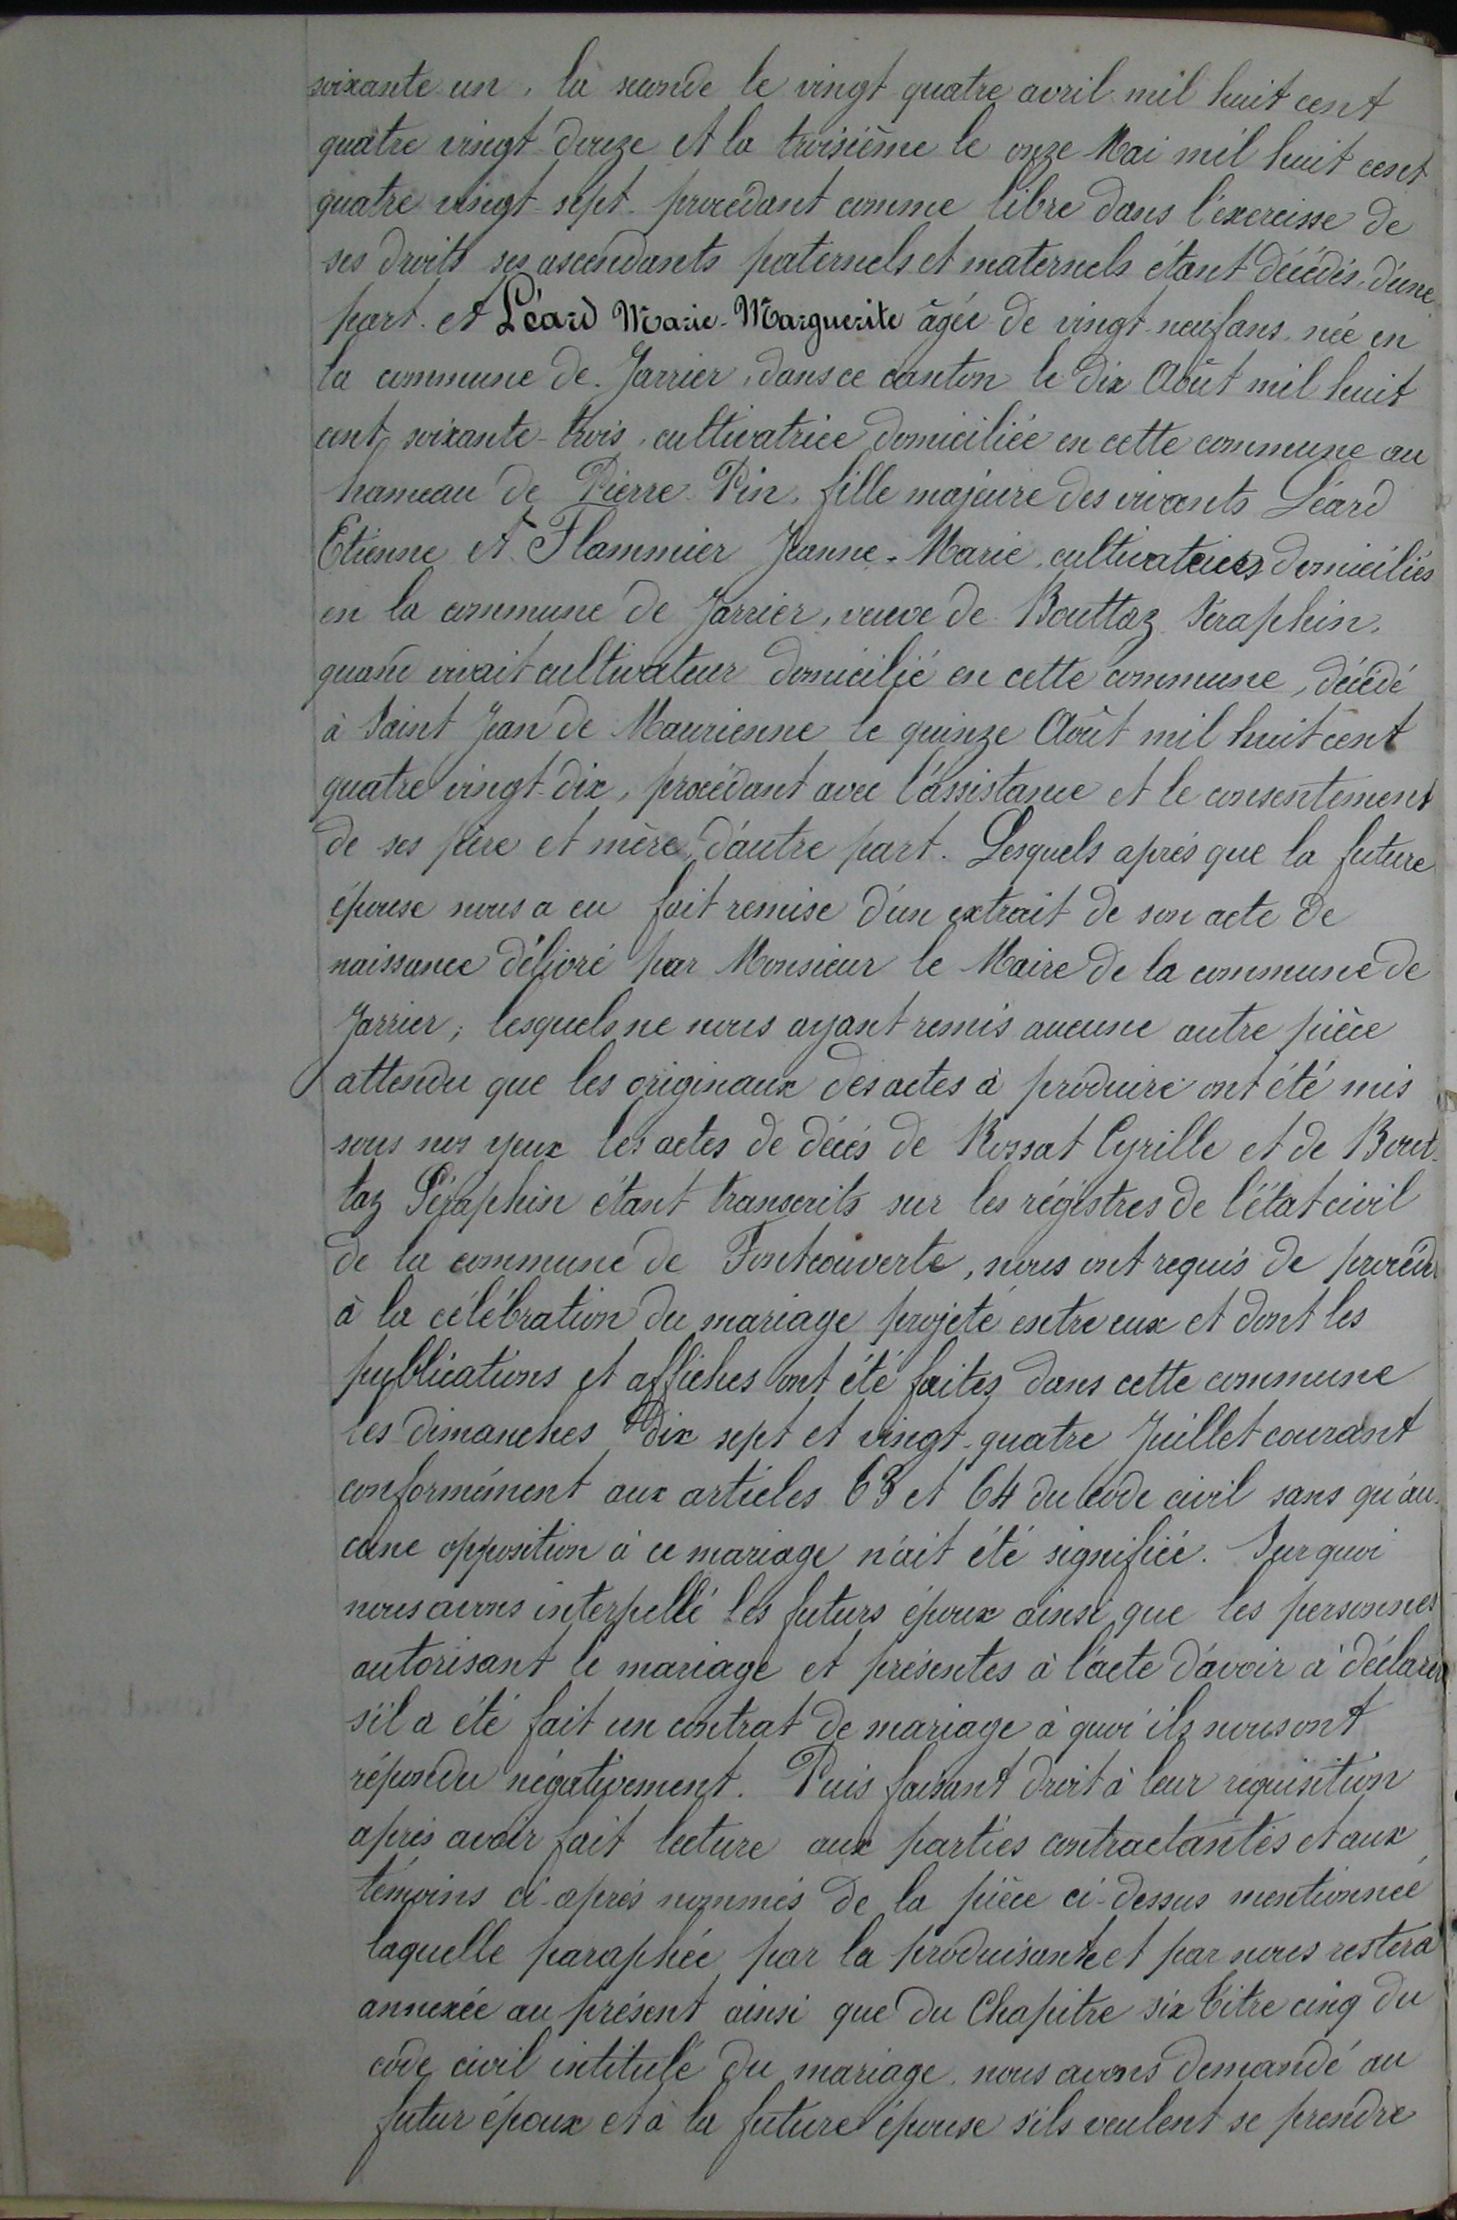 soixante un, la seconde le vingt quatre avril mil huit cent
quatre vingt douze et la troisième le onze Mai mil huit cent
quatre vingt-sept procédant comme libre dans l'exercisse de
ses droits ses ascendants paternels et maternels étant décédés, d'une
part. et Léard Marie-Marguerite âgée de vingt-neuf ans, née en
la commune de Jarrier, dans ce canton le dix Août mil huit
cent soixante-trois, cultivatrice domiciliée en cette commune au
hameau de Pierre-Pin, fille majeure des vivants Léard
Etienne et Flammier Jeanne-Marie, cultivateurs domiciliés
en la commune de Jarrier, veuve de Bouttaz Séraphin,
quand vivait cultivateur domicilié en cette commune, décédé
à Saint Jean de Maurienne le quinze Août mil huit cent
quatre vingt-dix, procédant avec l'assistance et le consentement
de ses père et mère, d'autre part. Lesquels après que la future
épouse nous a eu fait remise d'un extrait de son acte de
naissance délivré par Monsieur le Maire de la commune de
Jarrier; lesquels ne nous ayant remis aucune autre pièce
attendu que les originaux des actes à produire ont été mis
sous nos yeux les actes de décès de Rossat Cyrille et de Bout-
taz Séraphin étant transcrits sur les régistres de l'état civil
de la commune de Fontcouverte, nous ont requis de procéder
à la célébration du mariage projeté entre eux et dont les
publications et affiches ont été faites dans cette commune
les dimanches dix sept et vingt-quatre Juillet courant
conformément aux articles 63 et 64 du code civil sans qu'au-
cune opposition à ce mariage n'ait été signifiée. Sur quoi
nous avons interpellé les futurs époux ainsi que les personnes
autorisant le mariage et présentes à l'acte d'avoir à déclarer
s'il a été fait un contrat de mariage à quoi ils nous ont
répondu négativement. Puis faisant droit à leur réquisition
après avoir fait lecture aux parties contractantes et aux
témoins ci-après nommés de la pièce ci-dessus mentionnée
laquelle paraphée par la produisante et par nous restera
annexée au présent ainsi que du Chapitre six titre cinq du
code civil intitulé du mariage, nous avons demandé au
futur époux et à la future épouse s'ils veulent se prendre